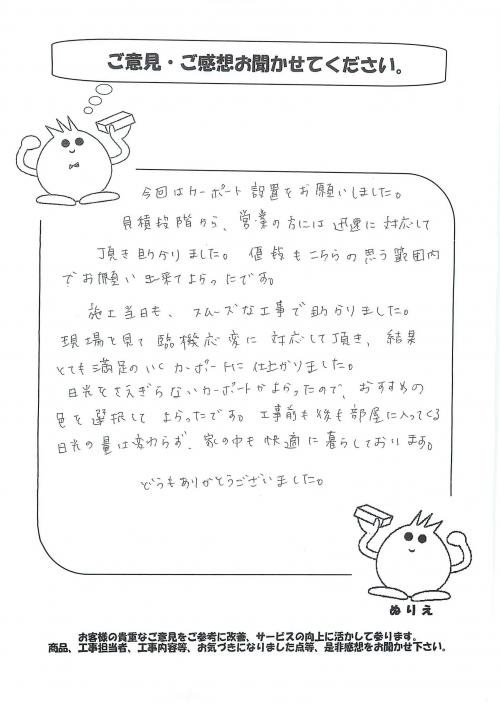 ご意見・ご感想お聞かせてください。
今回はカーポート設置をお願いしました。
見積段階から、営業の方には迅速に対応して
頂き助かりました。価格もこちらの思う範囲内
でお願い出来てよかったです。
施工当日も、スムーズな工事で助かりました。
現場を見て臨機応変に対応して頂き、結果
とても満足のいくカーポートに仕上がりました。
日光をさえぎらないカーポートがよかったので、おすすめの
色を選択してよかったです。工事前も後も部屋に入ってくる
日光の量は変わらず、家の中も快適に暮らしております。
どうもありがとうございました。
ぬりえ
お客様の貴重なご意見をご参考に改善、サービスの向上に活かして参ります。
商品、工事担当者、工事内容等、お気づきになりました点等、是非感想をお聞かせ下さい。